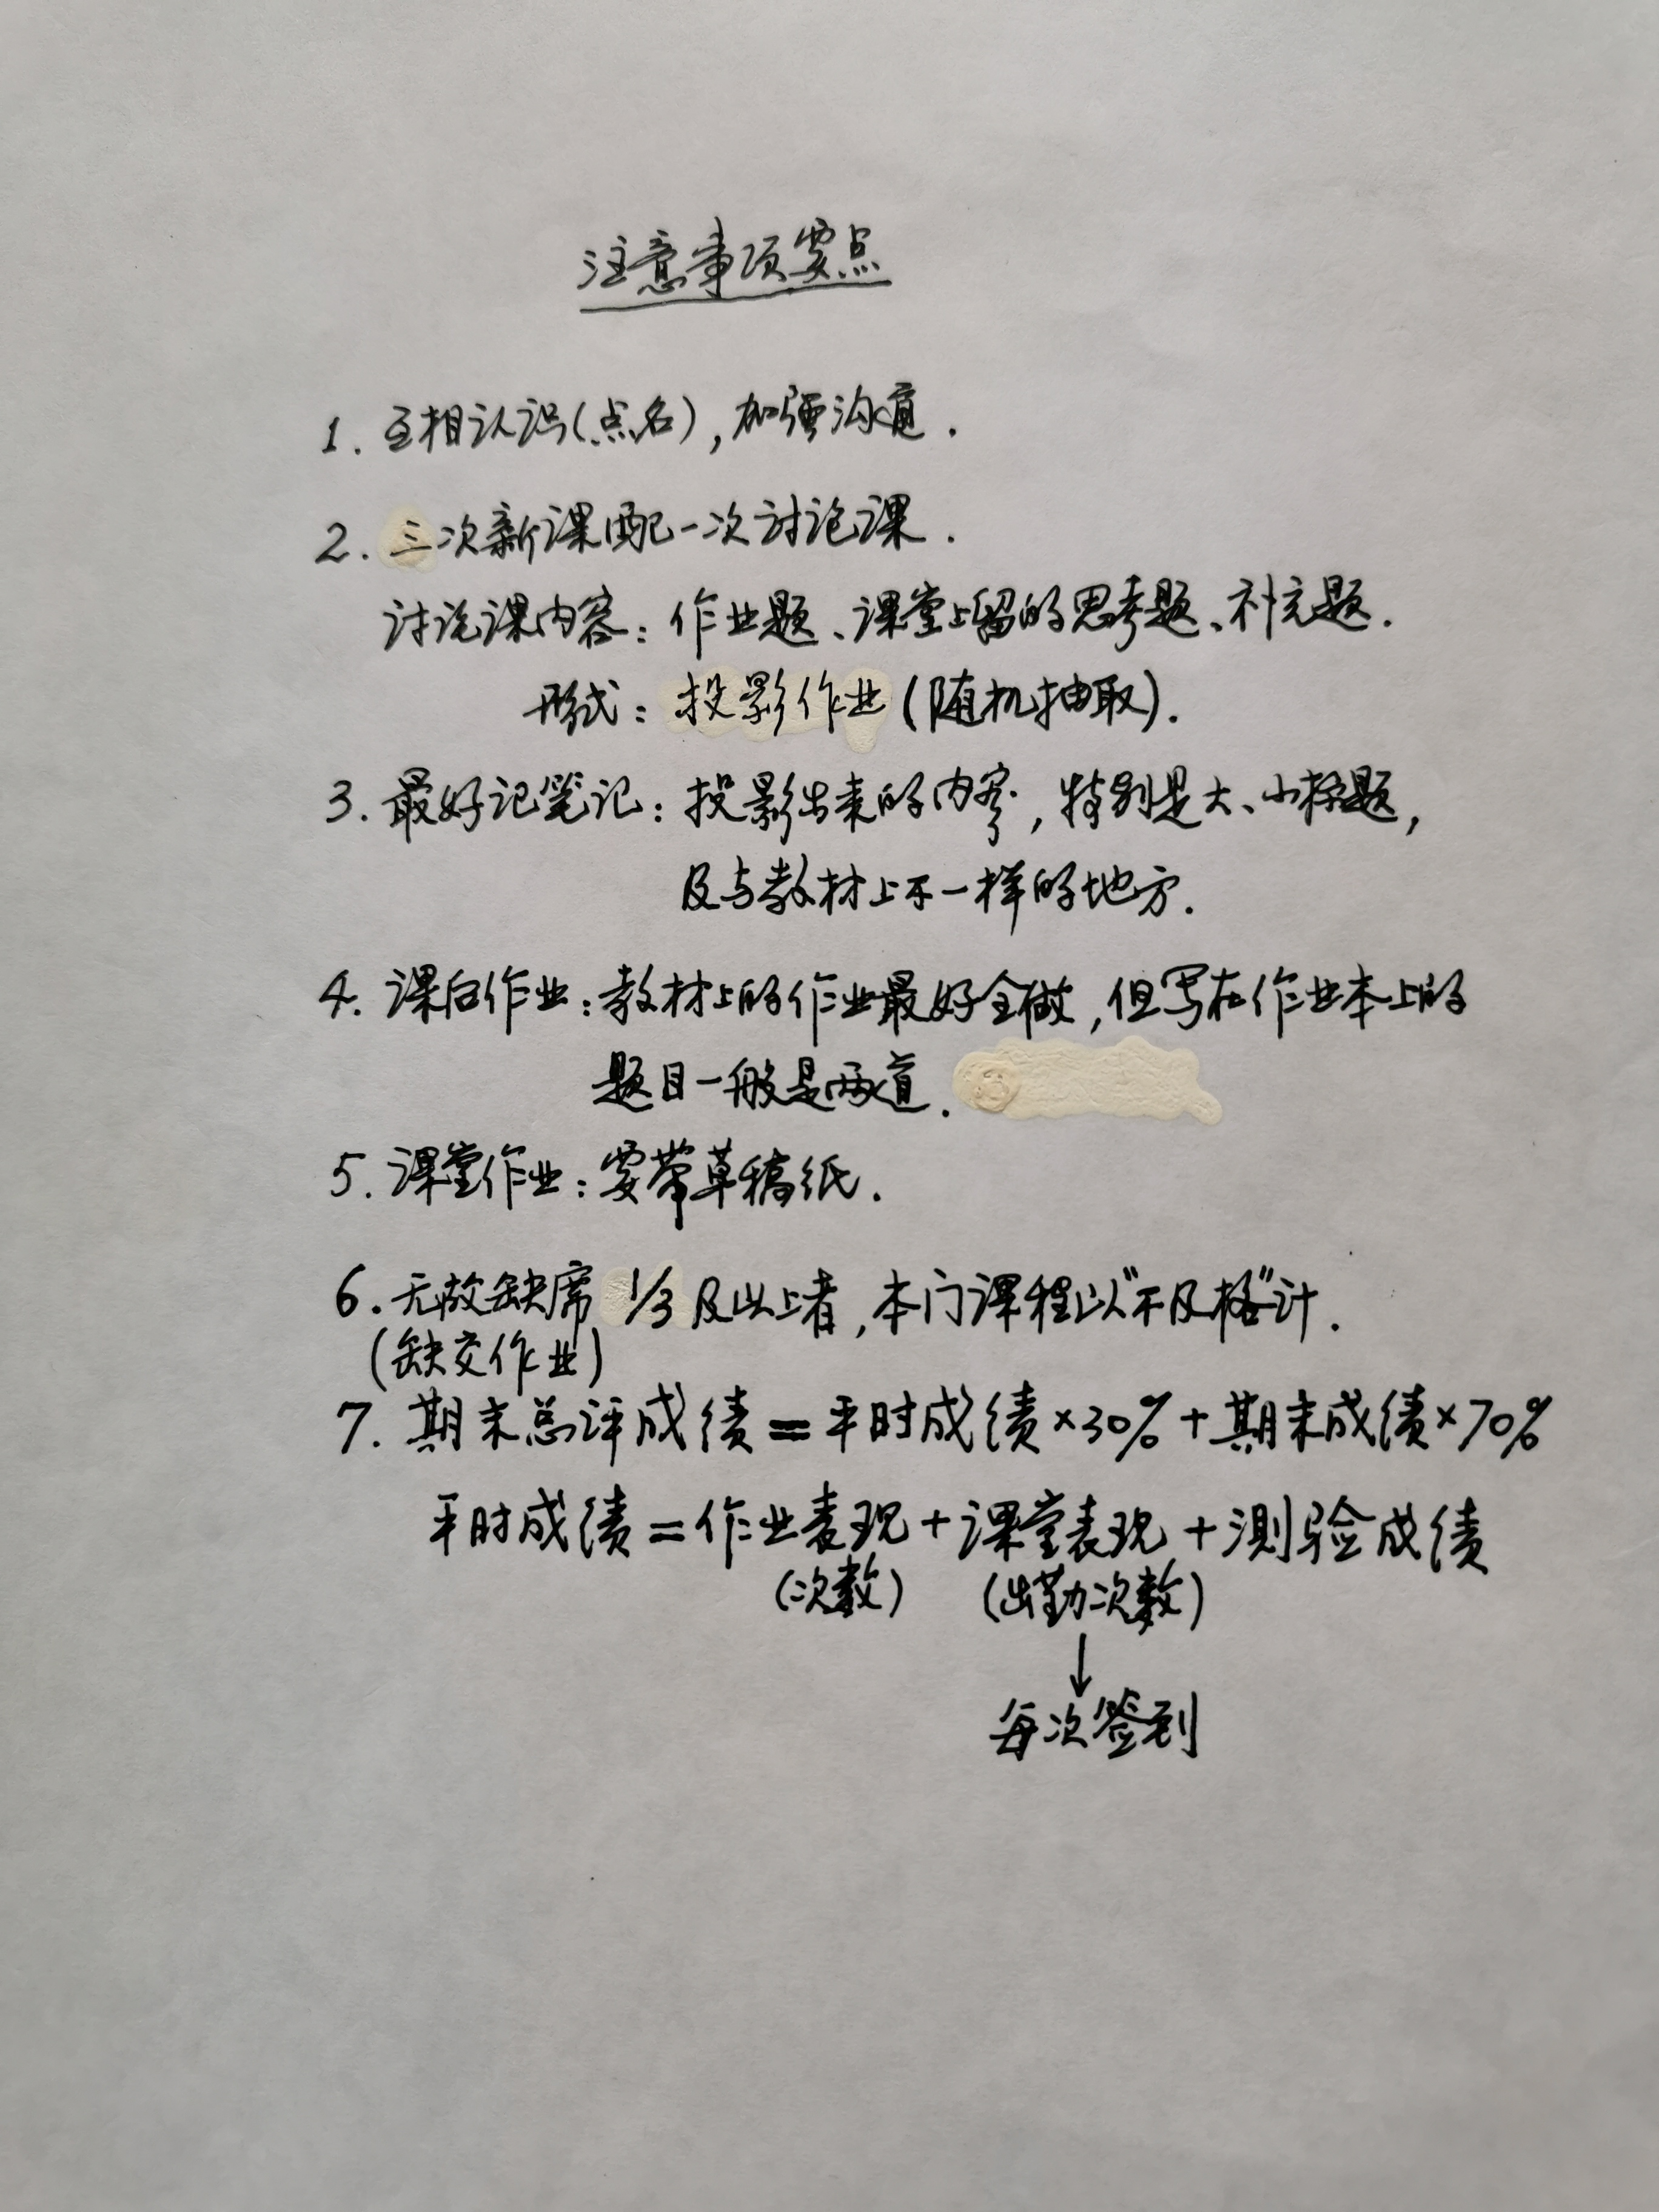 注意事项要点
1. 互相认识(点名),加强沟通.
2. 三次新课配一次讨论课.
讨论课内容: 作业题、课堂上留的思考题、补充题.
形式: 投影作业(随机抽取).
3. 最好记笔记: 投影出来的内容, 特别是大、小标题,
及与教材上不一样的地方.
4. 课后作业: 教材上的作业最好全做, 但写在作业本上的
题目一般是两道.
5. 课堂作业: 要带草稿纸.
6. 无故缺席 1/3 及以上者, 本门课程以"不及格"计.
(缺交作业)
7. 期末总评成绩=平时成绩×30%+期末成绩×70%
平时成绩=作业表现+课堂表现+测验成绩
(次数) (出勤次数)
↓
每次签到